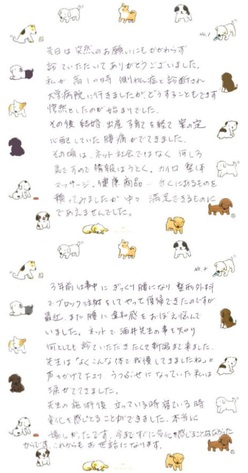 No.1
先日は突然のお願いにもかかわらず
診ていただいてありがとうございました。
私が 20才の時 側わん症と診断され
大学病院に行きましたがどうすることもできず
愕然としたのが始まりでした。
その後 結婚 出産 子育てを経て 案の定
心配していた腰痛がでてきました。
その頃は ネット社会ではなく 何しろ
見てすのと情報はうとく、カイロ 整体
マッサージ、健康商品… 体にふれるものを
頼ってみましたが 中々 満足できるものに
であえませんでした。
No.2
3年前は車中にぎっくり腰になり 整形外科
でブロック注射をしてやっと復帰できたのですが
最近、また腰に違和感をおぼえ悩んで
いました。ネットで 酒井先生の事を知り
何としても診ていただきたくて新潟まで来ました。
先生は「よくこんな体で我慢してきましたね」と
声をかけて下さり うつぶせになっていた私は
涙がでてきました。
先生の施術後 立っている時 寝ている時
変化を感じることができました。本当に
嬉しかったです。
これからもお世話になります。